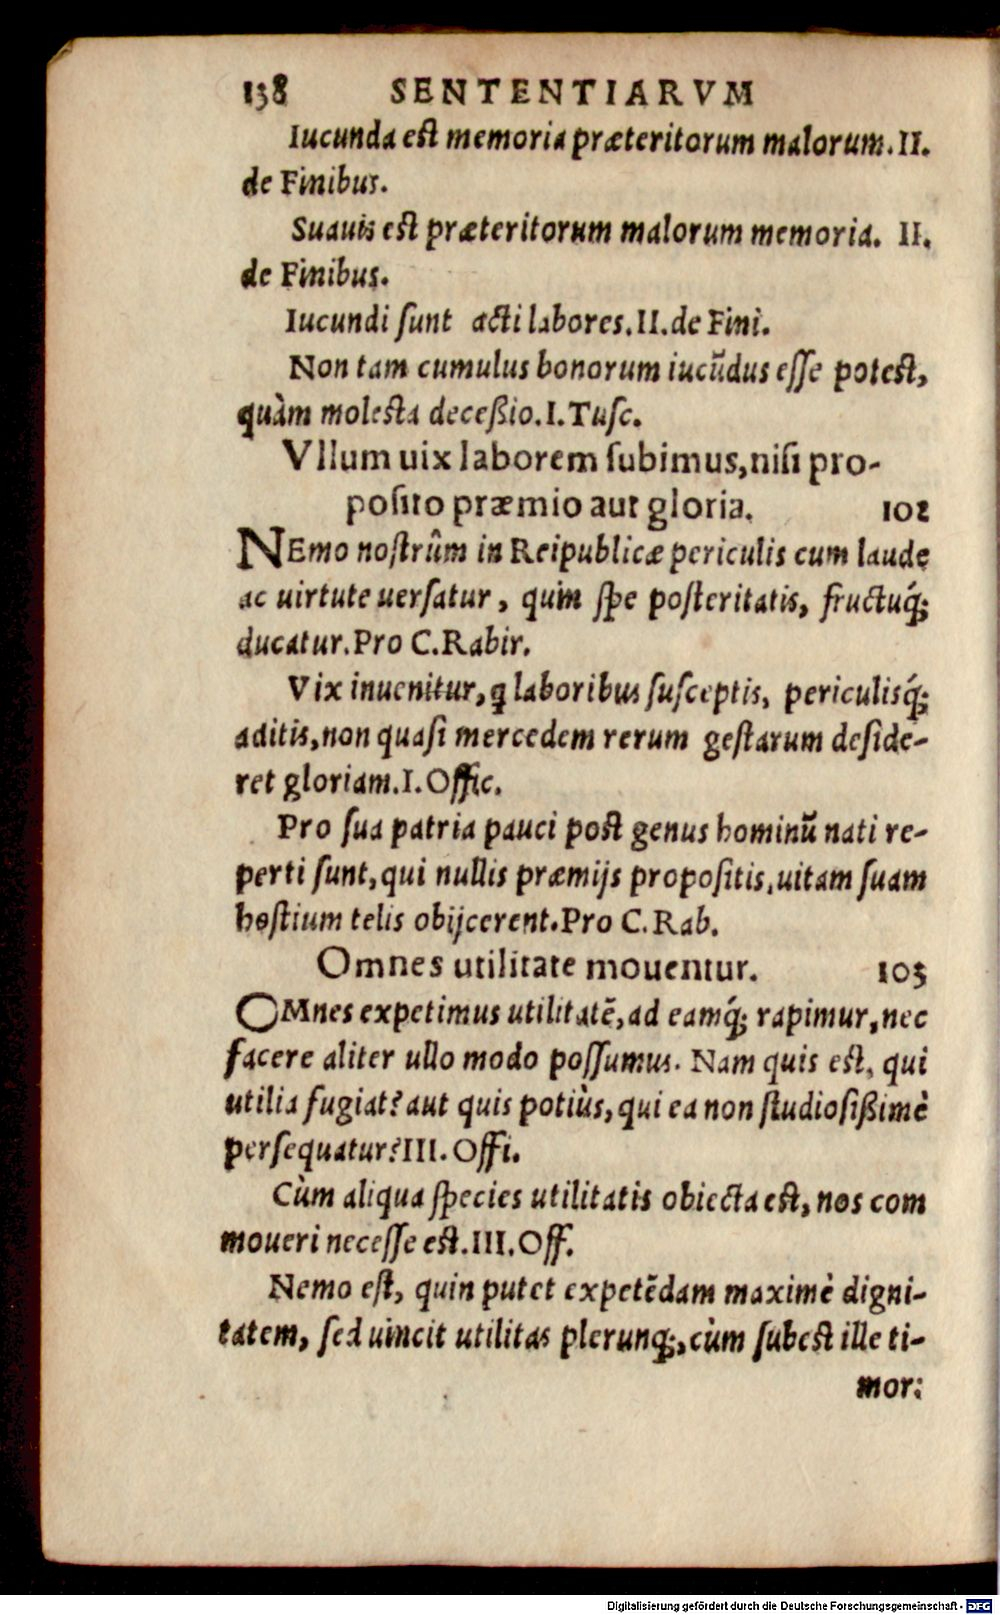 138 SENTENTIARVM
Iucunda est memoria præteritorum malorum. II.
de Finibus.
Suauis est præteritorum malorum memoria. II.
de Finibus.
Iucundi sunt acti labores. II. de Fini.
Non tam cumulus bonorum iucūdus esse potest,
quàm molesta deceßio. I. Tusc.
Vllum uix laborem subimus, nisi pro-
posito præmio aut gloria. 102
NEmo nostrûm in Reipublicæ periculis cum laude
ac uirtute uersatur, quin spe posteritatis, fructuq́;
ducatur. Pro C. Rabir.
Vix inuenitur, q̃ laboribus susceptis, periculisq́;
aditis, non quasi mercedem rerum gestarum deside-
ret gloriam. I. Offic.
Pro sua patria pauci post genus hominū nati re-
perti sunt, qui nullis præmijs propositis, uitam suam
hostium telis obijcerent. Pro C. Rab.
Omnes utilitate mouentur. 103
OMnes expetimus utilitatē, ad eamq́; rapimur, nec
facere aliter ullo modo possumus. Nam quis est, qui
utilia fugiat? aut quis potiùs, qui ea non studiosißimè
persequatur? III. Offi.
Cùm aliqua species utilitatis obiecta est, nos com
moueri necesse est. III. Off.
Nemo est, quin putet expetēdam maximè digni-
tatem, sed uincit utilitas plerunq;, cùm subest ille ti-
mor:
Digitalisierung gefördert durch die Deutsche Forschungsgemeinschaft - DFG